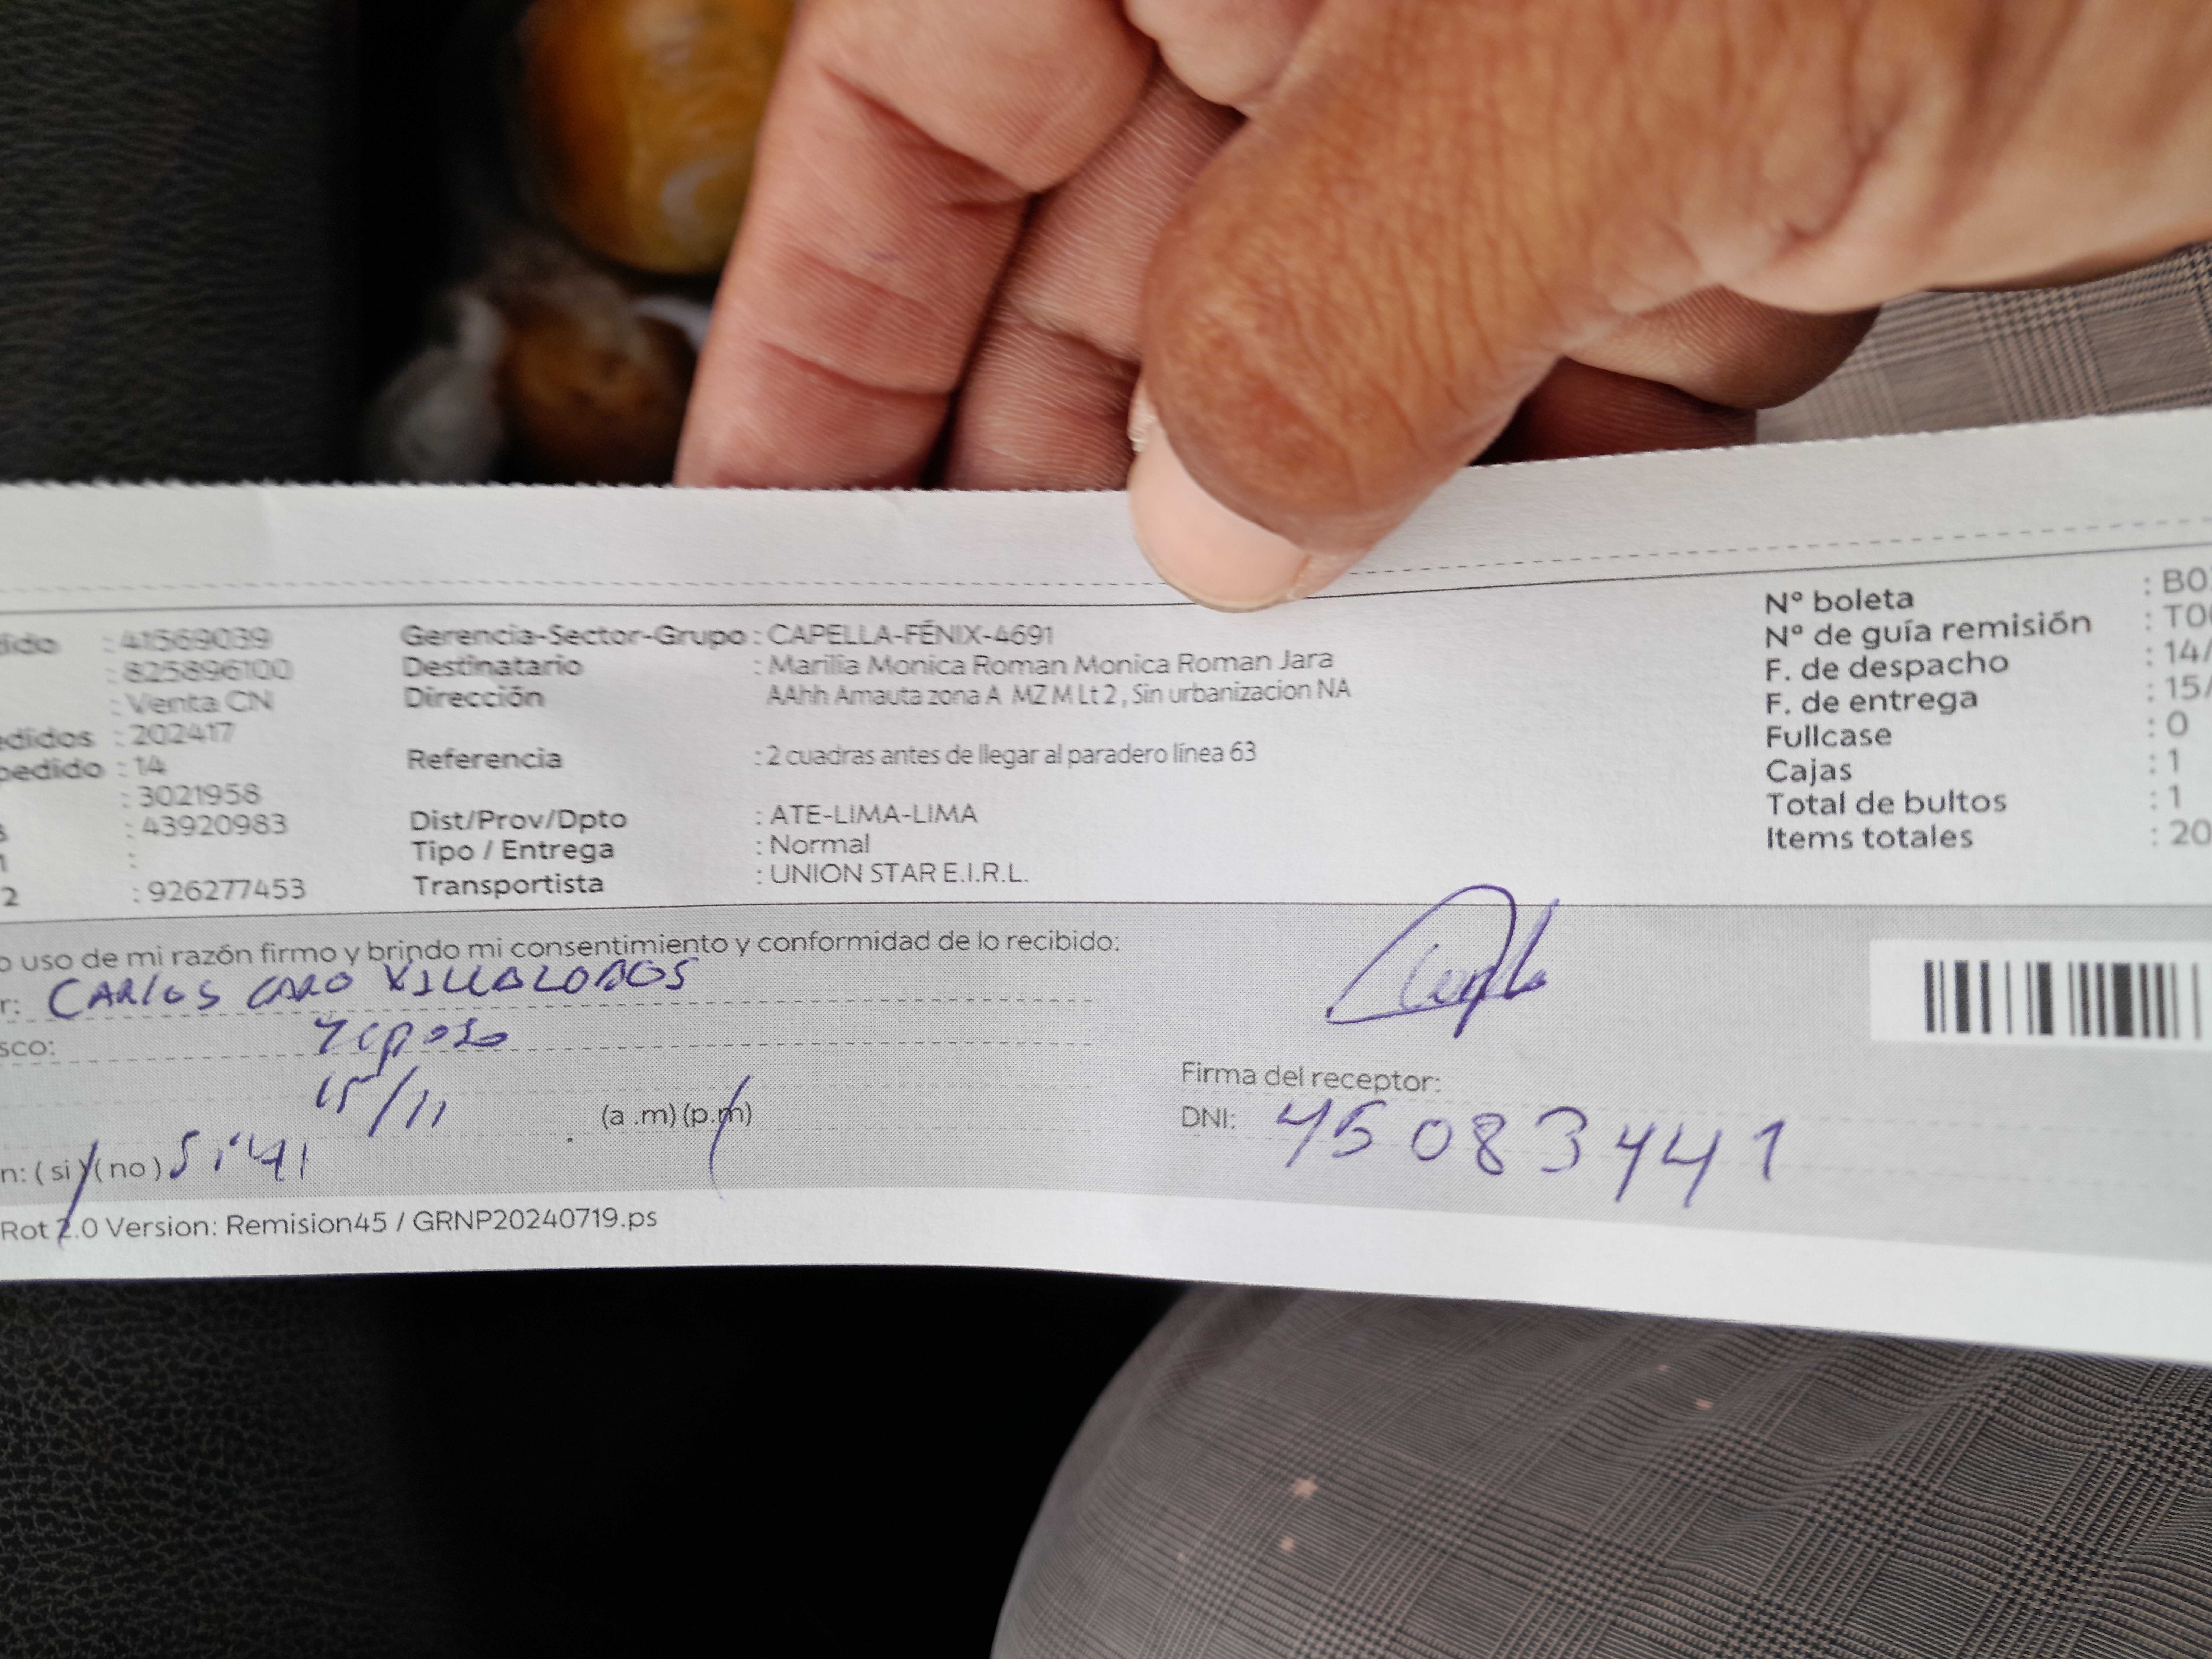 dido : 41569039
: 825896100
: Venta CN
edidos : 202417
pedido : 14
: 3021958
s : 43920983
1 :
2 : 926277453
Gerencia-Sector-Grupo : CAPELLA-FÉNIX-4691
Destinatario : Marilia Monica Roman Monica Roman Jara
Dirección AAhh Amauta zona A MZ M Lt 2 , Sin urbanizacion NA
Referencia : 2 cuadras antes de llegar al paradero línea 63
Dist/Prov/Dpto : ATE-LIMA-LIMA
Tipo / Entrega : Normal
Transportista : UNION STAR E.I.R.L.
Nº boleta : B0
Nº de guía remisión : T0
F. de despacho : 14/
F. de entrega : 15/
Fullcase : 0
Cajas : 1
Total de bultos : 1
Items totales : 20
o uso de mi razón firmo y brindo mi consentimiento y conformidad de lo recibido:
r: CARLOS CARO VILLALOBOS
sco: Yeposo
15/11 (a .m) (p.m)
n: ( si ) ( no )
Firma del receptor:
DNI: 45083441
Rot 2.0 Version: Remision45 / GRNP20240719.ps